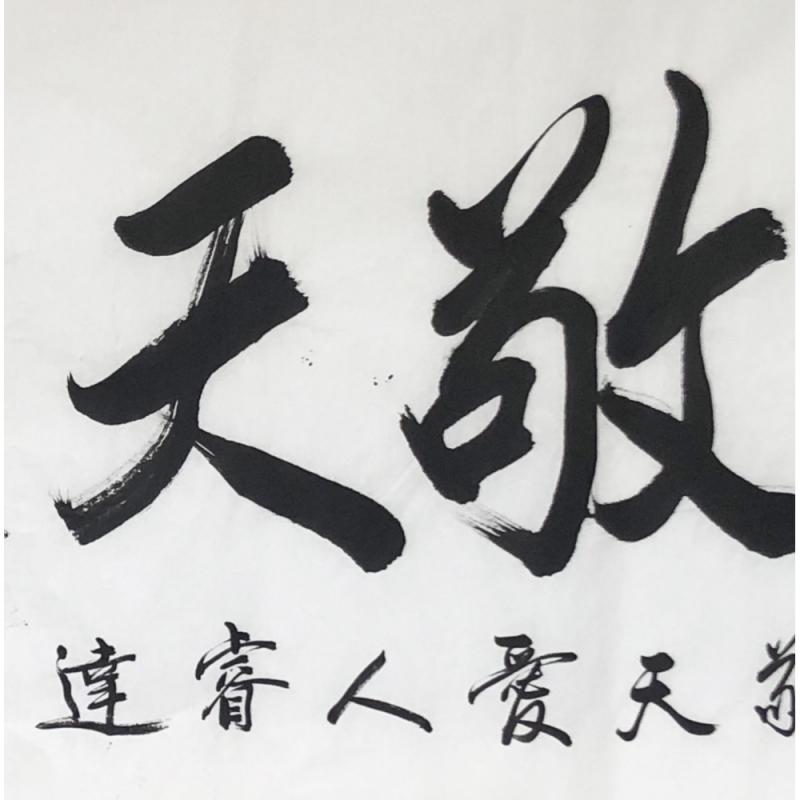 敬天
敬天愛人睿達